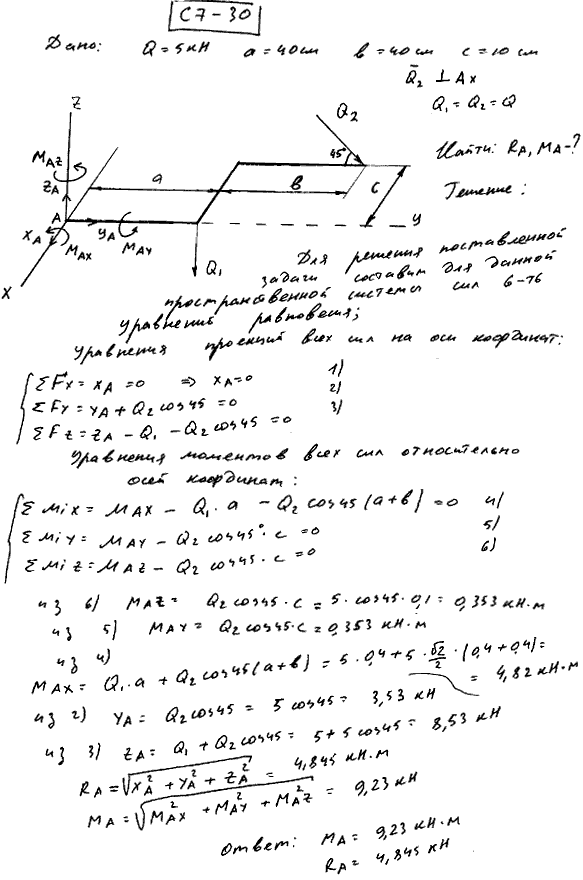 С7-30
Дано: Q = 5кН a = 40см в = 40см с = 10см
Q̄₂ ⊥ Ax
Q₁ = Q₂ = Q
Найти: RA, MA-?
Решение:
Z
Q₂
45°
MAZ
ZA
a
в
c
A
У
XA
YA
MAX
MAY
Q₁
X
Для решения поставленной
задачи составим для данной
пространственной системы сил 6-ть
уравнений равновесия;
уравнения проекций всех сил на оси координат:
ΣFx = XA = 0 => XA=0 1)
ΣFy = YA + Q₂cos45 = 0 2)
ΣFz = ZA - Q₁ - Q₂cos45 = 0 3)
Уравнения моментов всех сил относительно
осей координат:
Σmix = MAX - Q₁·a - Q₂cos45(a+в) = 0 4)
Σmiy = MAY - Q₂cos45°·c = 0 5)
Σmiz = MAZ - Q₂cos45·c = 0 6)
из 6) MAZ = Q₂cos45·c = 5·cos45·0,1 = 0,353 кН·м
из 5) MAY = Q₂cos45·c = 0,353 кН·м
из 4)
MAX = Q₁·a + Q₂cos45(a+в) = 5·0,4+5·√2/2·(0,4+0,4) =
= 4,82 кН·м
из 2) YA = Q₂cos45 = 5cos45 = 3,53 кН
из 3) ZA = Q₁ + Q₂cos45 = 5+5cos45 = 8,53 кН
RA = √(XA² + YA² + ZA²) = 4,845 кН·м
MA = √(MAX² + MAY² + MAZ²) = 9,23 кН
Ответ: MA = 9,23 кН·м
RA = 4,845 кН